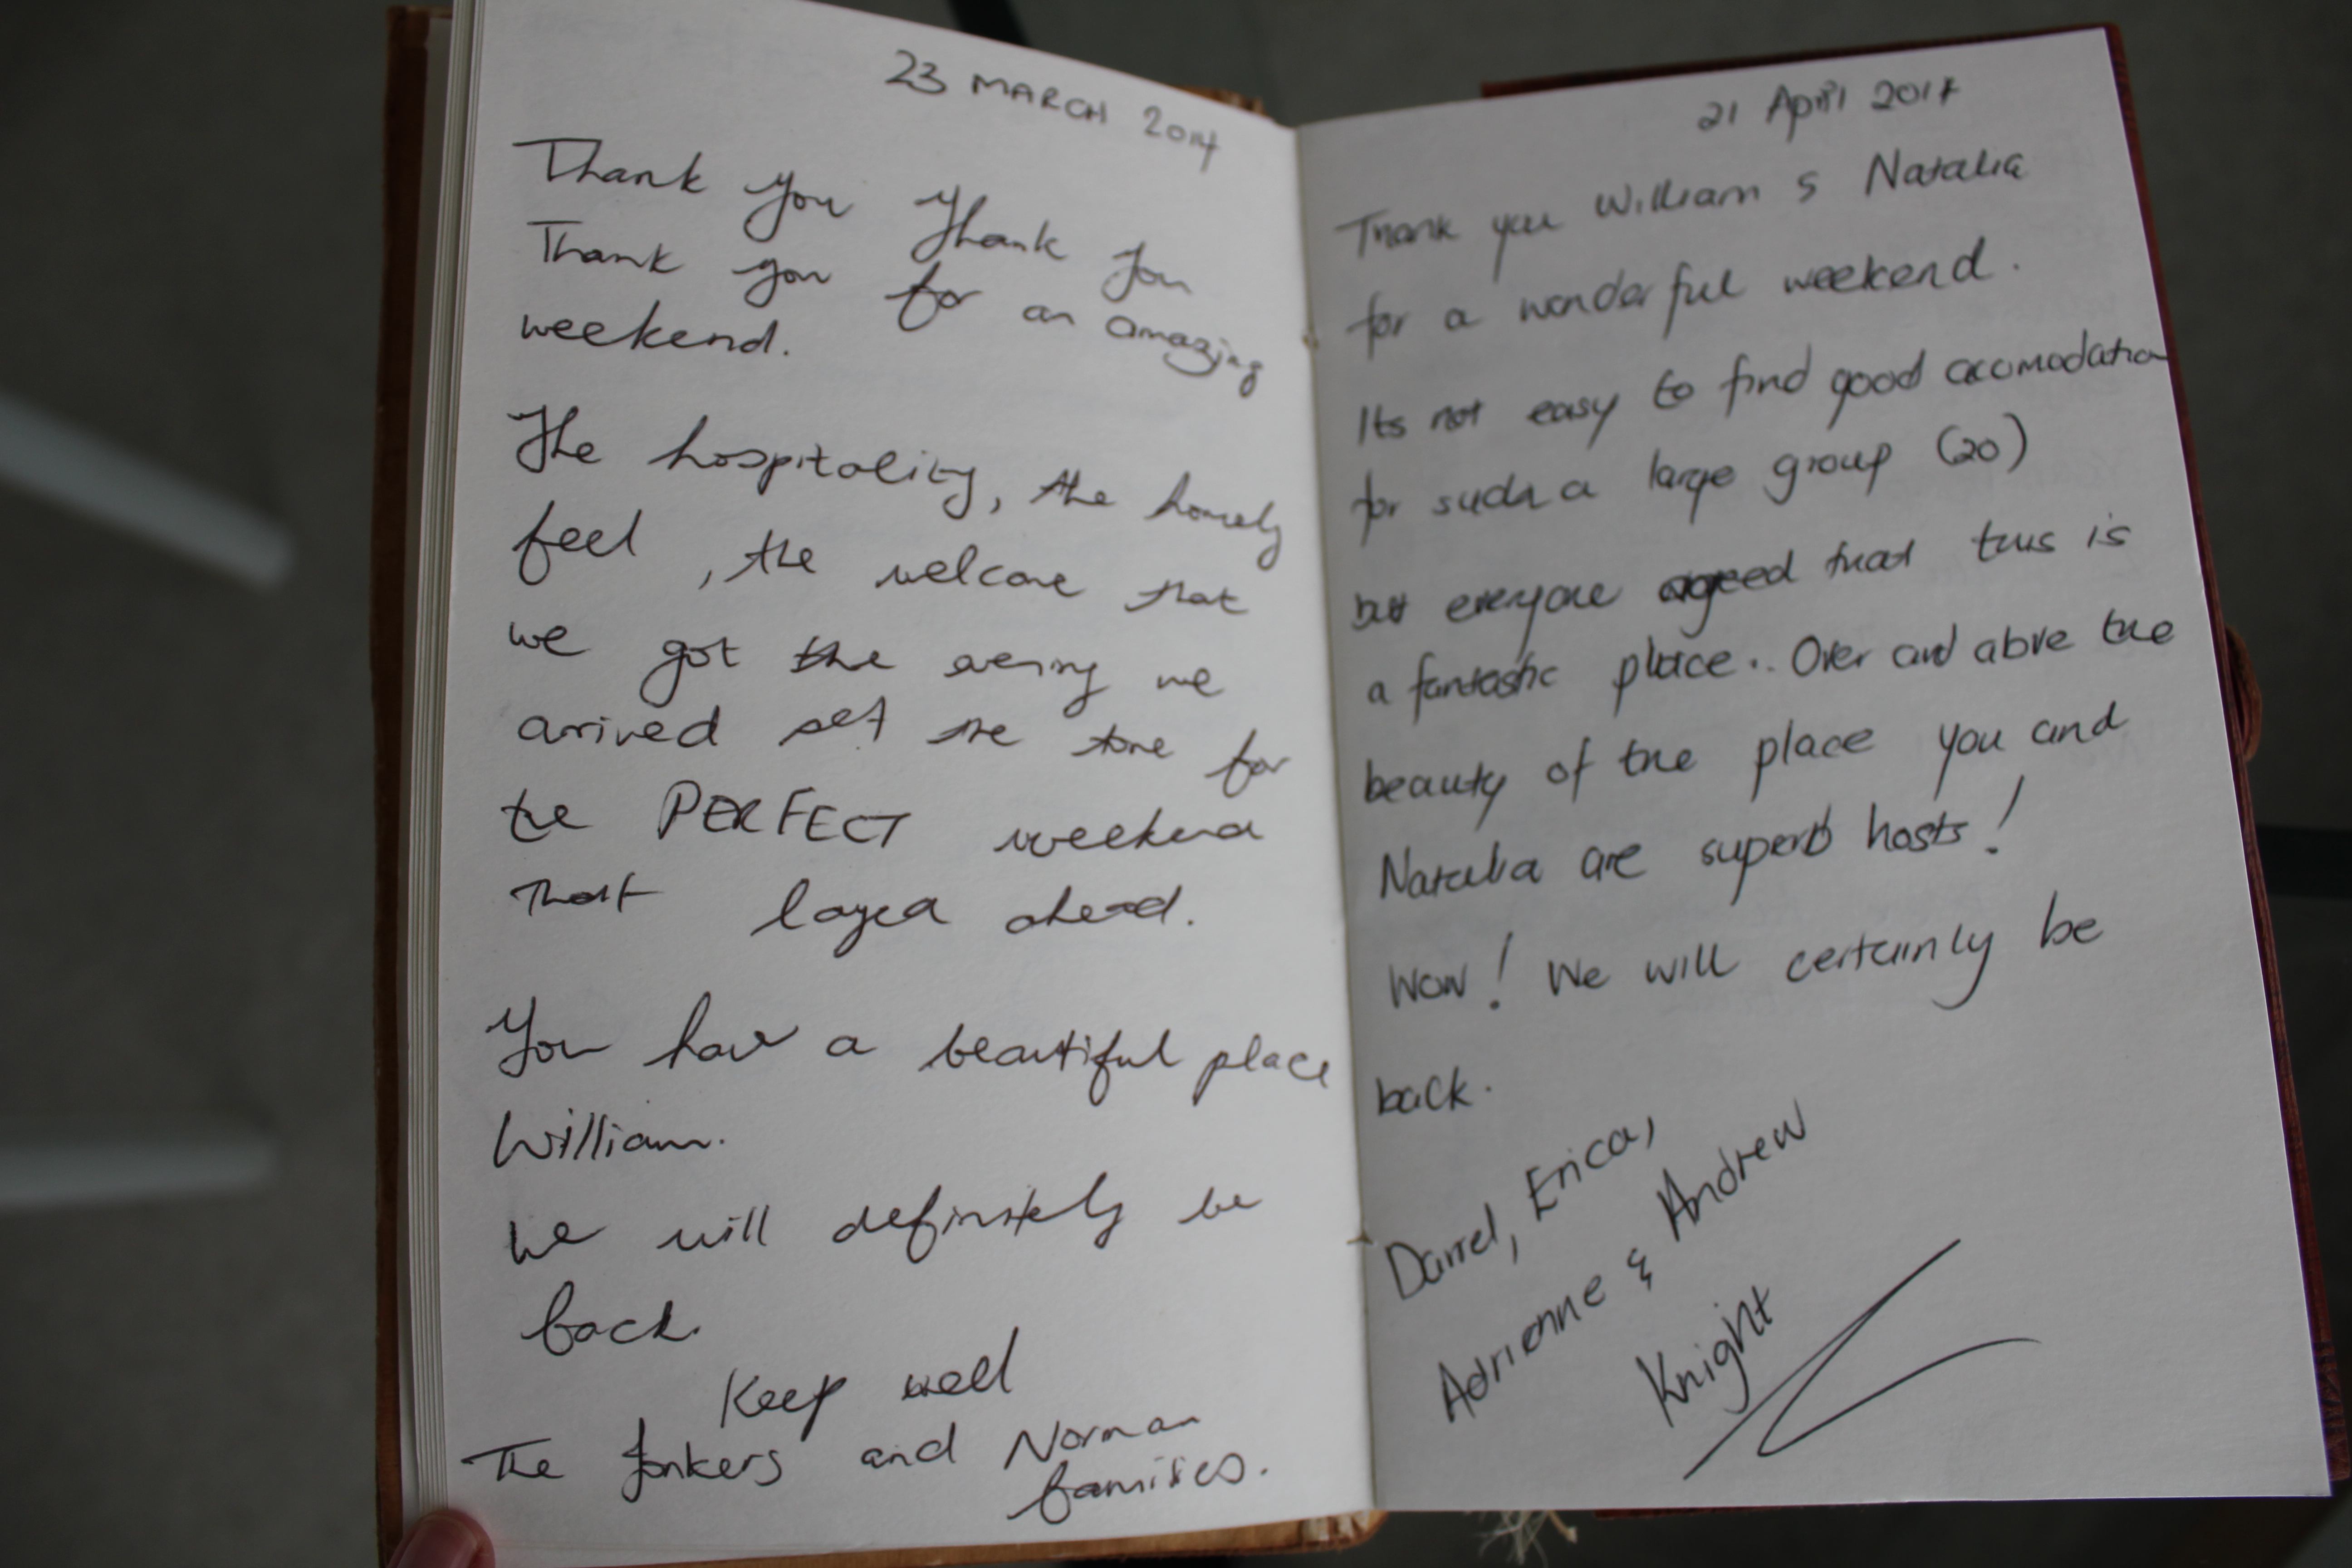 23 MARCH 2014
Thank you Thank you
Thank you for an amazing
weekend.
The hospitality, the homely
feel, the welcome that
we got the evening we
arrived set the tone for
the PERFECT weekend
that layed ahead.
You have a beautiful place
William.
We will definitely be
back.
Keep well
The Jonkers and Norman
families.
21 April 2014
Thank you William & Natalia
for a wonderful weekend.
Its not easy to find good accomodation
for such a large group (20)
but everyone agreed that this is
a fantastic place.. Over and above the
beauty of the place you and
Natalia are superb hosts!
Wow! We will certainly be
back.
Darrel, Erica,
Adrienne & Andrew
Knight